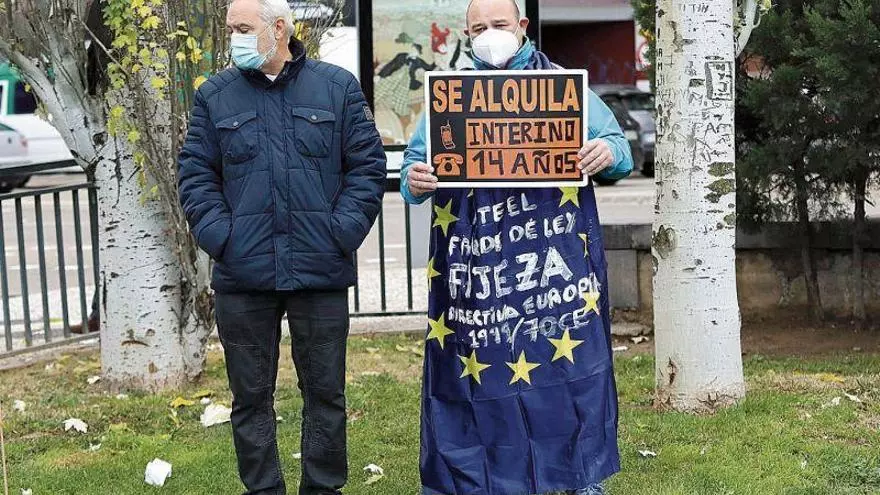 SE ALQUILA
INTERINO
14 AÑOS
DE LEY
FIJEZA
DIRECTIVA EUROPEA
1999/70CE